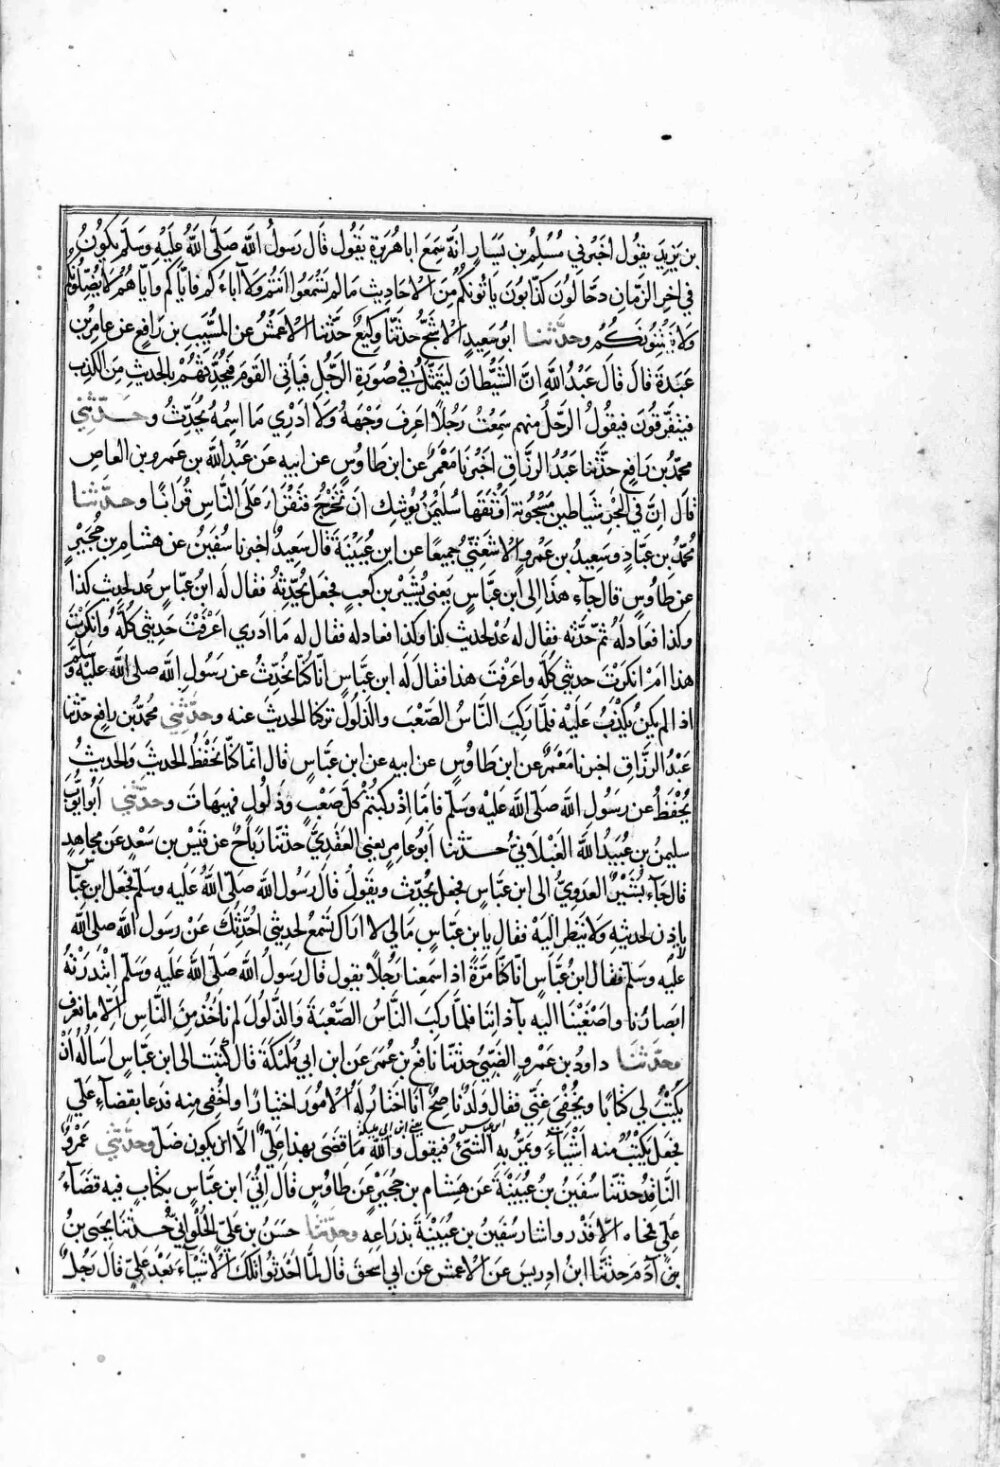 بن يزيد يقول اخبرني مسلم بن يسار انه سمع ابا هريرة يقول قال رسول الله صلى الله عليه وسلم يكون
في اخر الزمان دجالون كذابون ياتونكم من الاحاديث ما لم تسمعوا انتم ولا آباءكم فاياكم واياهم لا يضلونكم
ولا يفتنونكم وحدثنا ابو سعيد الاشج حدثنا وكيع حدثنا الاعمش عن المسيب بن رافع عن عامر بن
عبدة قال قال عبد الله ان الشيطان ليتمثل في صورة الرجل فياتى القوم فيحدثهم بالحديث من الكذب
فيتفرقون فيقول الرجل منهم سمعت رجلا اعرف وجهه ولا ادري ما اسمه يحدث وحدثني
محمد بن رافع حدثنا عبد الرزاق اخبرنا معمر عن ابن طاوس عن ابيه عن عبد الله بن عمرو بن العاص
قال ان في البحر شياطين مسجونة اوثقها سليمن يوشك ان تخرج فتقرا على الناس قرانا وحدثنا
محمد بن عباد وسعيد بن عمرو الاشعثي جميعا عن ابن عيينة قال سعيد اخبرنا سفين عن هشام بن حجير
عن طاوس قال جاء هذا الى ابن عباس يعنى بشير بن كعب فجعل يحدثه فقال له ابن عباس عد لحديث كذا
وكذا فعاد له ثم حدثه فقال له عد لحديث كذا وكذا فعاد له فقال له ما ادري اعرفت حديثي كله وانكرت
هذا ام انكرت حديثي كله واعرفت هذا فقال له ابن عباس انا كنا نحدث عن رسول الله صلى الله عليه وسلم
اذ لم يكن يكذب عليه فلما ركب الناس الصعب والذلول تركنا الحديث عنه وحدثني محمد بن رافع حدثنا
عبد الرزاق اخبرنا معمر عن ابن طاوس عن ابيه عن ابن عباس قال انما كنا نحفظ الحديث والحديث
يحفظ عن رسول الله صلى الله عليه وسلم فاما اذ ركبتم كل صعب وذلول فهيهات وحدثني ابو ايوب
سليمن بن عبيد الله الغيلاني حدثنا ابو عامر يعنى العقدي حدثنا رباح عن قيس بن سعد عن مجاهد
قال جاء بشير العدوي الى ابن عباس فجعل يحدث ويقول قال رسول الله صلى الله عليه وسلم فجعل ابن عباس
لا ياذن لحديثه ولا ينظر اليه فقال يا بن عباس مالي لا اراك تسمع لحديثي احدثك عن رسول الله صلى الله
عليه وسلم فقال ابن عباس انا كنا مرة اذا سمعنا رجلا يقول قال رسول الله صلى الله عليه وسلم ابتدرته
ابصارنا واصغينا اليه بآذاننا فلما ركب الناس الصعبة والذلول لم ناخذ من الناس الا ما نعرف
وحدثنا داود بن عمرو الضبي حدثنا نافع بن عمر عن ابن ابي مليكة قال كتبت الى ابن عباس اساله ان
يكتب لي كتابا ويخفي عني فقال ولد ناصح انا اختار له الامور اختيارا واخفى منه فدعا بقضاء علي
فجعل يكتب منه اشياء ويمر به الشئ فيقول والله ما قضى بهذا علي الا ان يكون ضل وحدثني عمرو
الناقد حدثنا سفين بن عيينة عن هشام بن حجير عن طاوس قال اتي ابن عباس بكتاب فيه قضاء
علي فمحاه الا قدر واشار سفين بن عيينة بذراعه وحدثنا حسن بن علي الحلواني حدثنا يحيى بن
بن آدم حدثنا ابن ادريس عن الاعمش عن ابي اسحق قال لما احدثوا تلك الاشياء بعد علي قال رجل